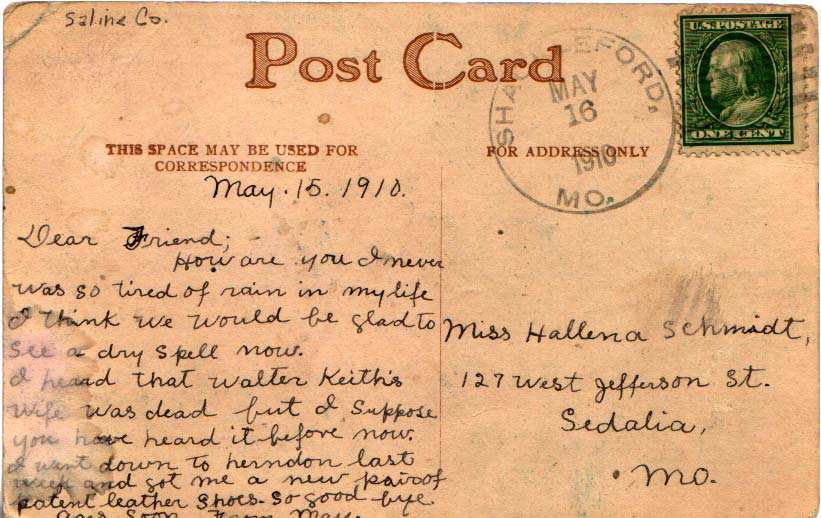 Saline Co.
Post Card
SHACKLEFORD,
MAY
16
1910
MO.
U.S. POSTAGE
ONE CENT
THIS SPACE MAY BE USED FOR
CORRESPONDENCE
FOR ADDRESS ONLY
May. 15. 1910.
Dear Friend;
How are you I never
was so tired of rain in my life
I think we would be glad to
see a dry spell now.
I heard that Walter Keith's
wife was dead but I suppose
you have heard it before now.
I went down to herndon last
week and got me a new pair of
patent leather shoes. So good bye.
ans soon From May.
Miss Hallena Schmidt,
127 West Jefferson St.
Sedalia,
Mo.